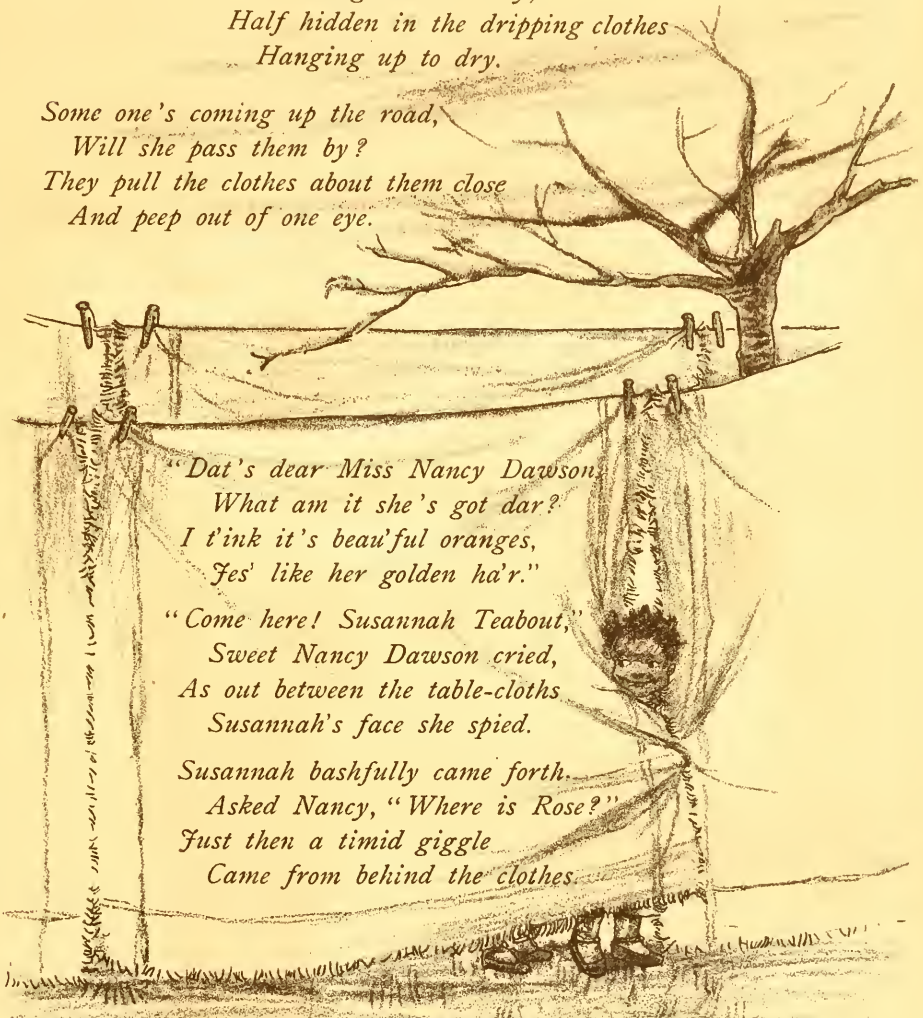 Half hidden in the dripping clothes
Hanging up to dry.
Some one's coming up the road,
Will she pass them by?
They pull the clothes about them close
And peep out of one eye.
"Dat's dear Miss Nancy Dawson,
What am it she's got dar?
I t'ink it's beau'ful oranges,
Jes' like her golden ha'r."
"Come here! Susannah Teabout,"
Sweet Nancy Dawson cried,
As out between the table-cloths
Susannah's face she spied.
Susannah bashfully came forth.
Asked Nancy, "Where is Rose?"
Just then a timid giggle
Came from behind the clothes.